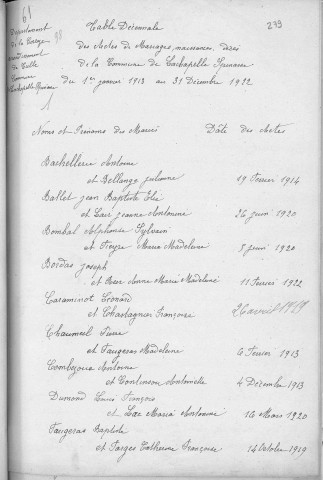 61
239
Département
de la Corrèze
Arrondissement
de Tulle
Commune
Lachapelle Spinasse
Table Décennale
des Actes de Mariages, naissances, décès
de la Commune de Lachapelle Spinasse
du 1er janvier 1913 au 31 Décembre 1922
Noms et Prénoms des Mariés Date des Actes
Bachellerie Antoine
et Bellange julienne 19 Fevrier 1914
Ballet jean Baptiste Elie
et Lair jeanne Antonine 26 juin 1920
Bombal Alphonse Sylvain
et Freyre Marie Madeleine 5 juin 1920
Bordas joseph
et Anne Marie Madeleine 11 Fevrier 1922
Caraminot Léonard
et Chastagner Françoise 26 avril 1919
Chaumeil Pierre
et Faugeras Madeleine 6 Fevrier 1913
Combezou Antoine
et Continsouza Antoinette 4 Décembre 1913
Dumond Louis François
et Maria Antonine 16 Mars 1920
Faugeras Baptiste
et Farges Catherine Françoise 14 Octobre 1919